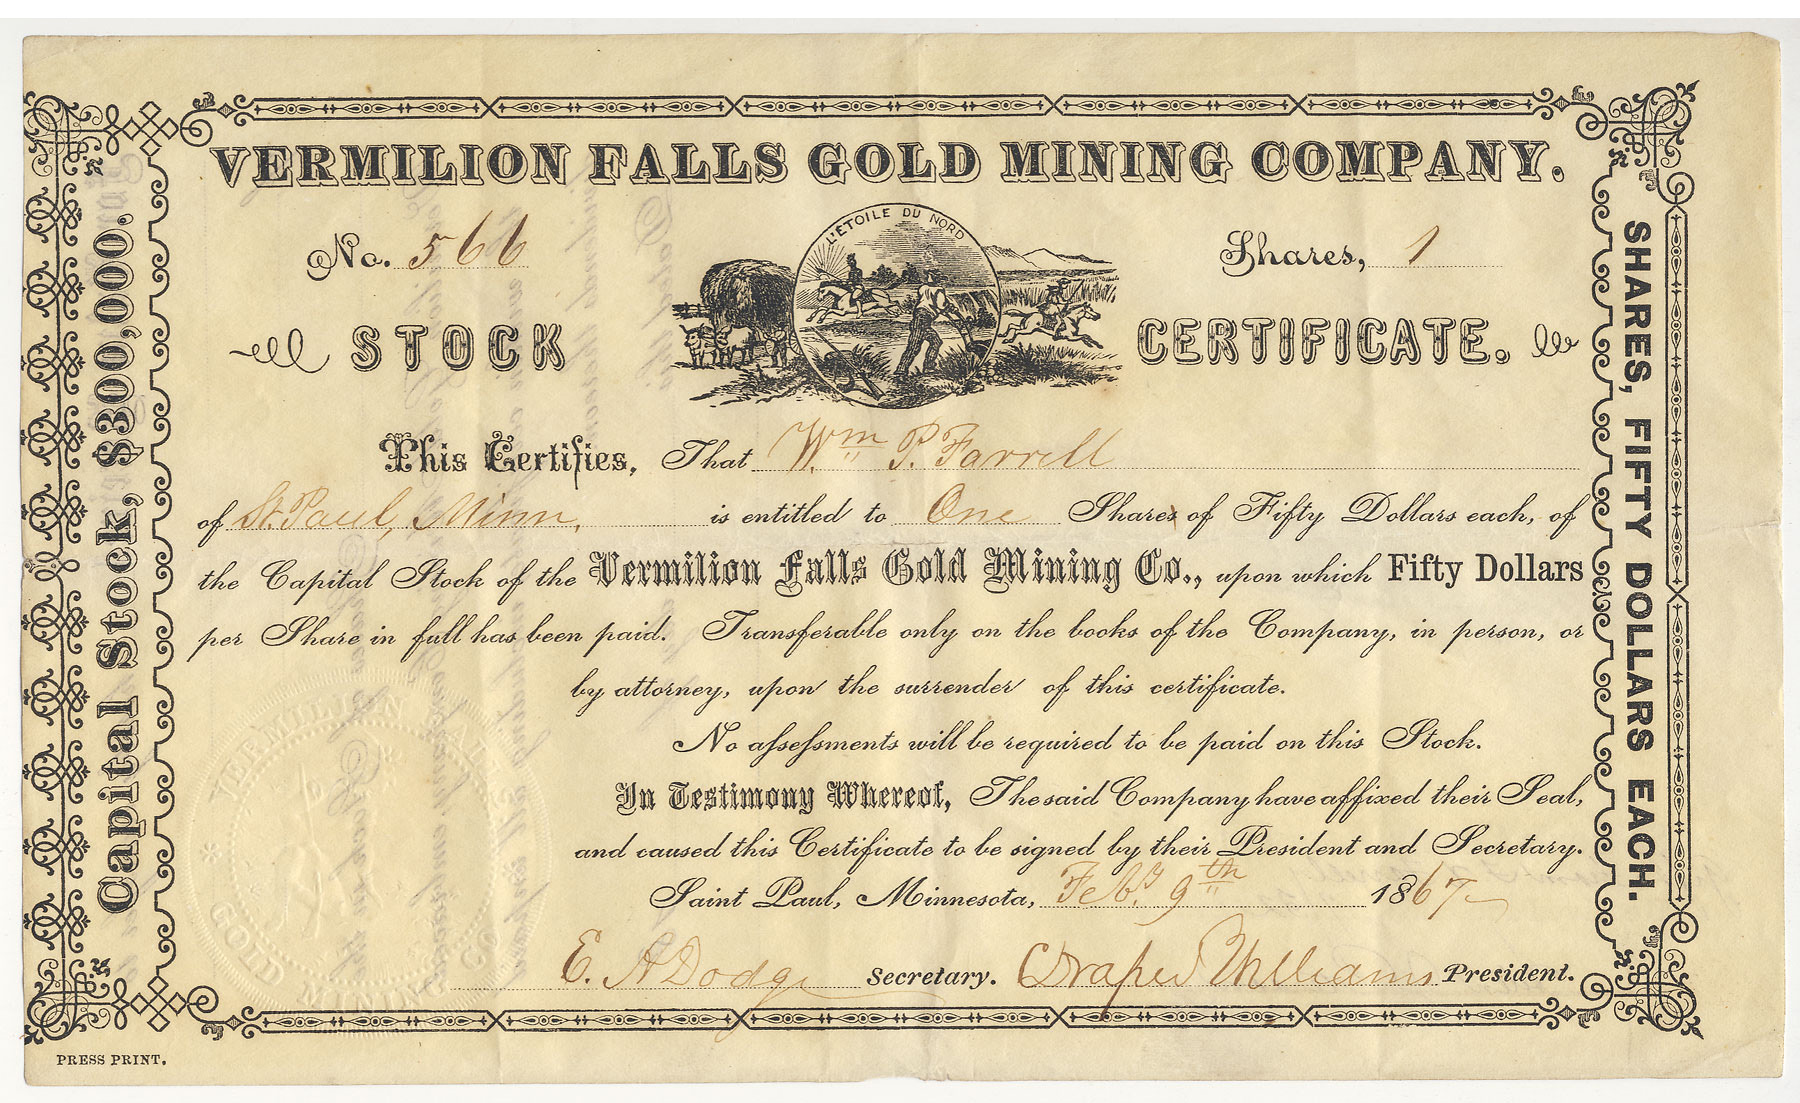 VERMILION FALLS GOLD MINING COMPANY.
No. 566
L'ETOILE DU NORD
Shares, 1
STOCK CERTIFICATE.
This Certifies, That Wm P. Farrell
of St. Paul, Minn, is entitled to One Shares of Fifty Dollars each, of
the Capital Stock of the Vermilion Falls Gold Mining Co., upon which Fifty Dollars
per Share in full has been paid. Transferable only on the books of the Company, in person, or
by attorney, upon the surrender of this certificate.
No assessments will be required to be paid on this Stock.
In Testimony Whereof, The said Company have affixed their Seal,
and caused this Certificate to be signed by their President and Secretary.
Saint Paul, Minnesota, Feby. 9th 1867
E. A Dodge Secretary. C Draper Williams President.
Capital Stock, $300,000.
SHARES, FIFTY DOLLARS EACH.
VERMILION FALLS
GOLD MINING CO
PRESS PRINT.